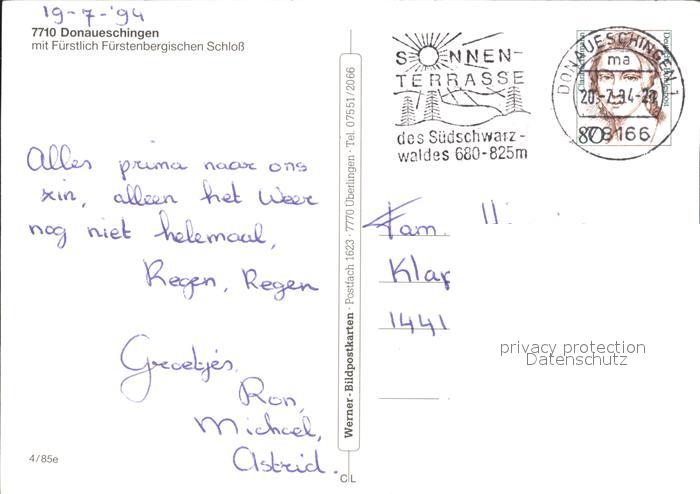 19-7-'94
7710 Donaueschingen
mit Fürstlich Fürstenbergischen Schloß
Alles prima naar ons
zin, alleen het Weer
nog niet helemaal,
Regen, Regen
Groetjes
Ron,
Michael,
Astrid.
4/85e
Werner-Bildpostkarten · Postfach 1623 · 7770 Überlingen · Tel. 07551/2066
C L
SONNEN-
TERRASSE
des Südschwarz-
waldes 680-825m
DONAUESCHINGEN 1
ma
20.-7.94-21
78166
80
Deutsche Bundespost
Fam.
Klap
1441
privacy protection
Datenschutz